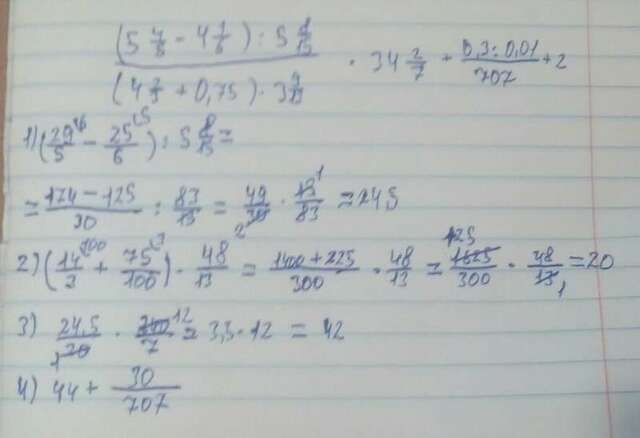 (5 4/5 - 4 1/6) : 5 8/15
(4 2/3 + 0,75) · 3 9/13 · 34 2/7 + 0,3 : 0,01 / 707 + 2
1) (29/5 - 25/6) : 5 8/15 =
= 174 - 125 / 30 : 83/15 = 49/30 · 15/83 = 245
2) (14/3 + 75/100) · 48/13 = 1400 + 225 / 300 · 48/13 = 1625/300 · 48/13 = 20
3) 24,5/20 · 240/7 = 3,5 · 12 = 42
4) 44 + 30/707